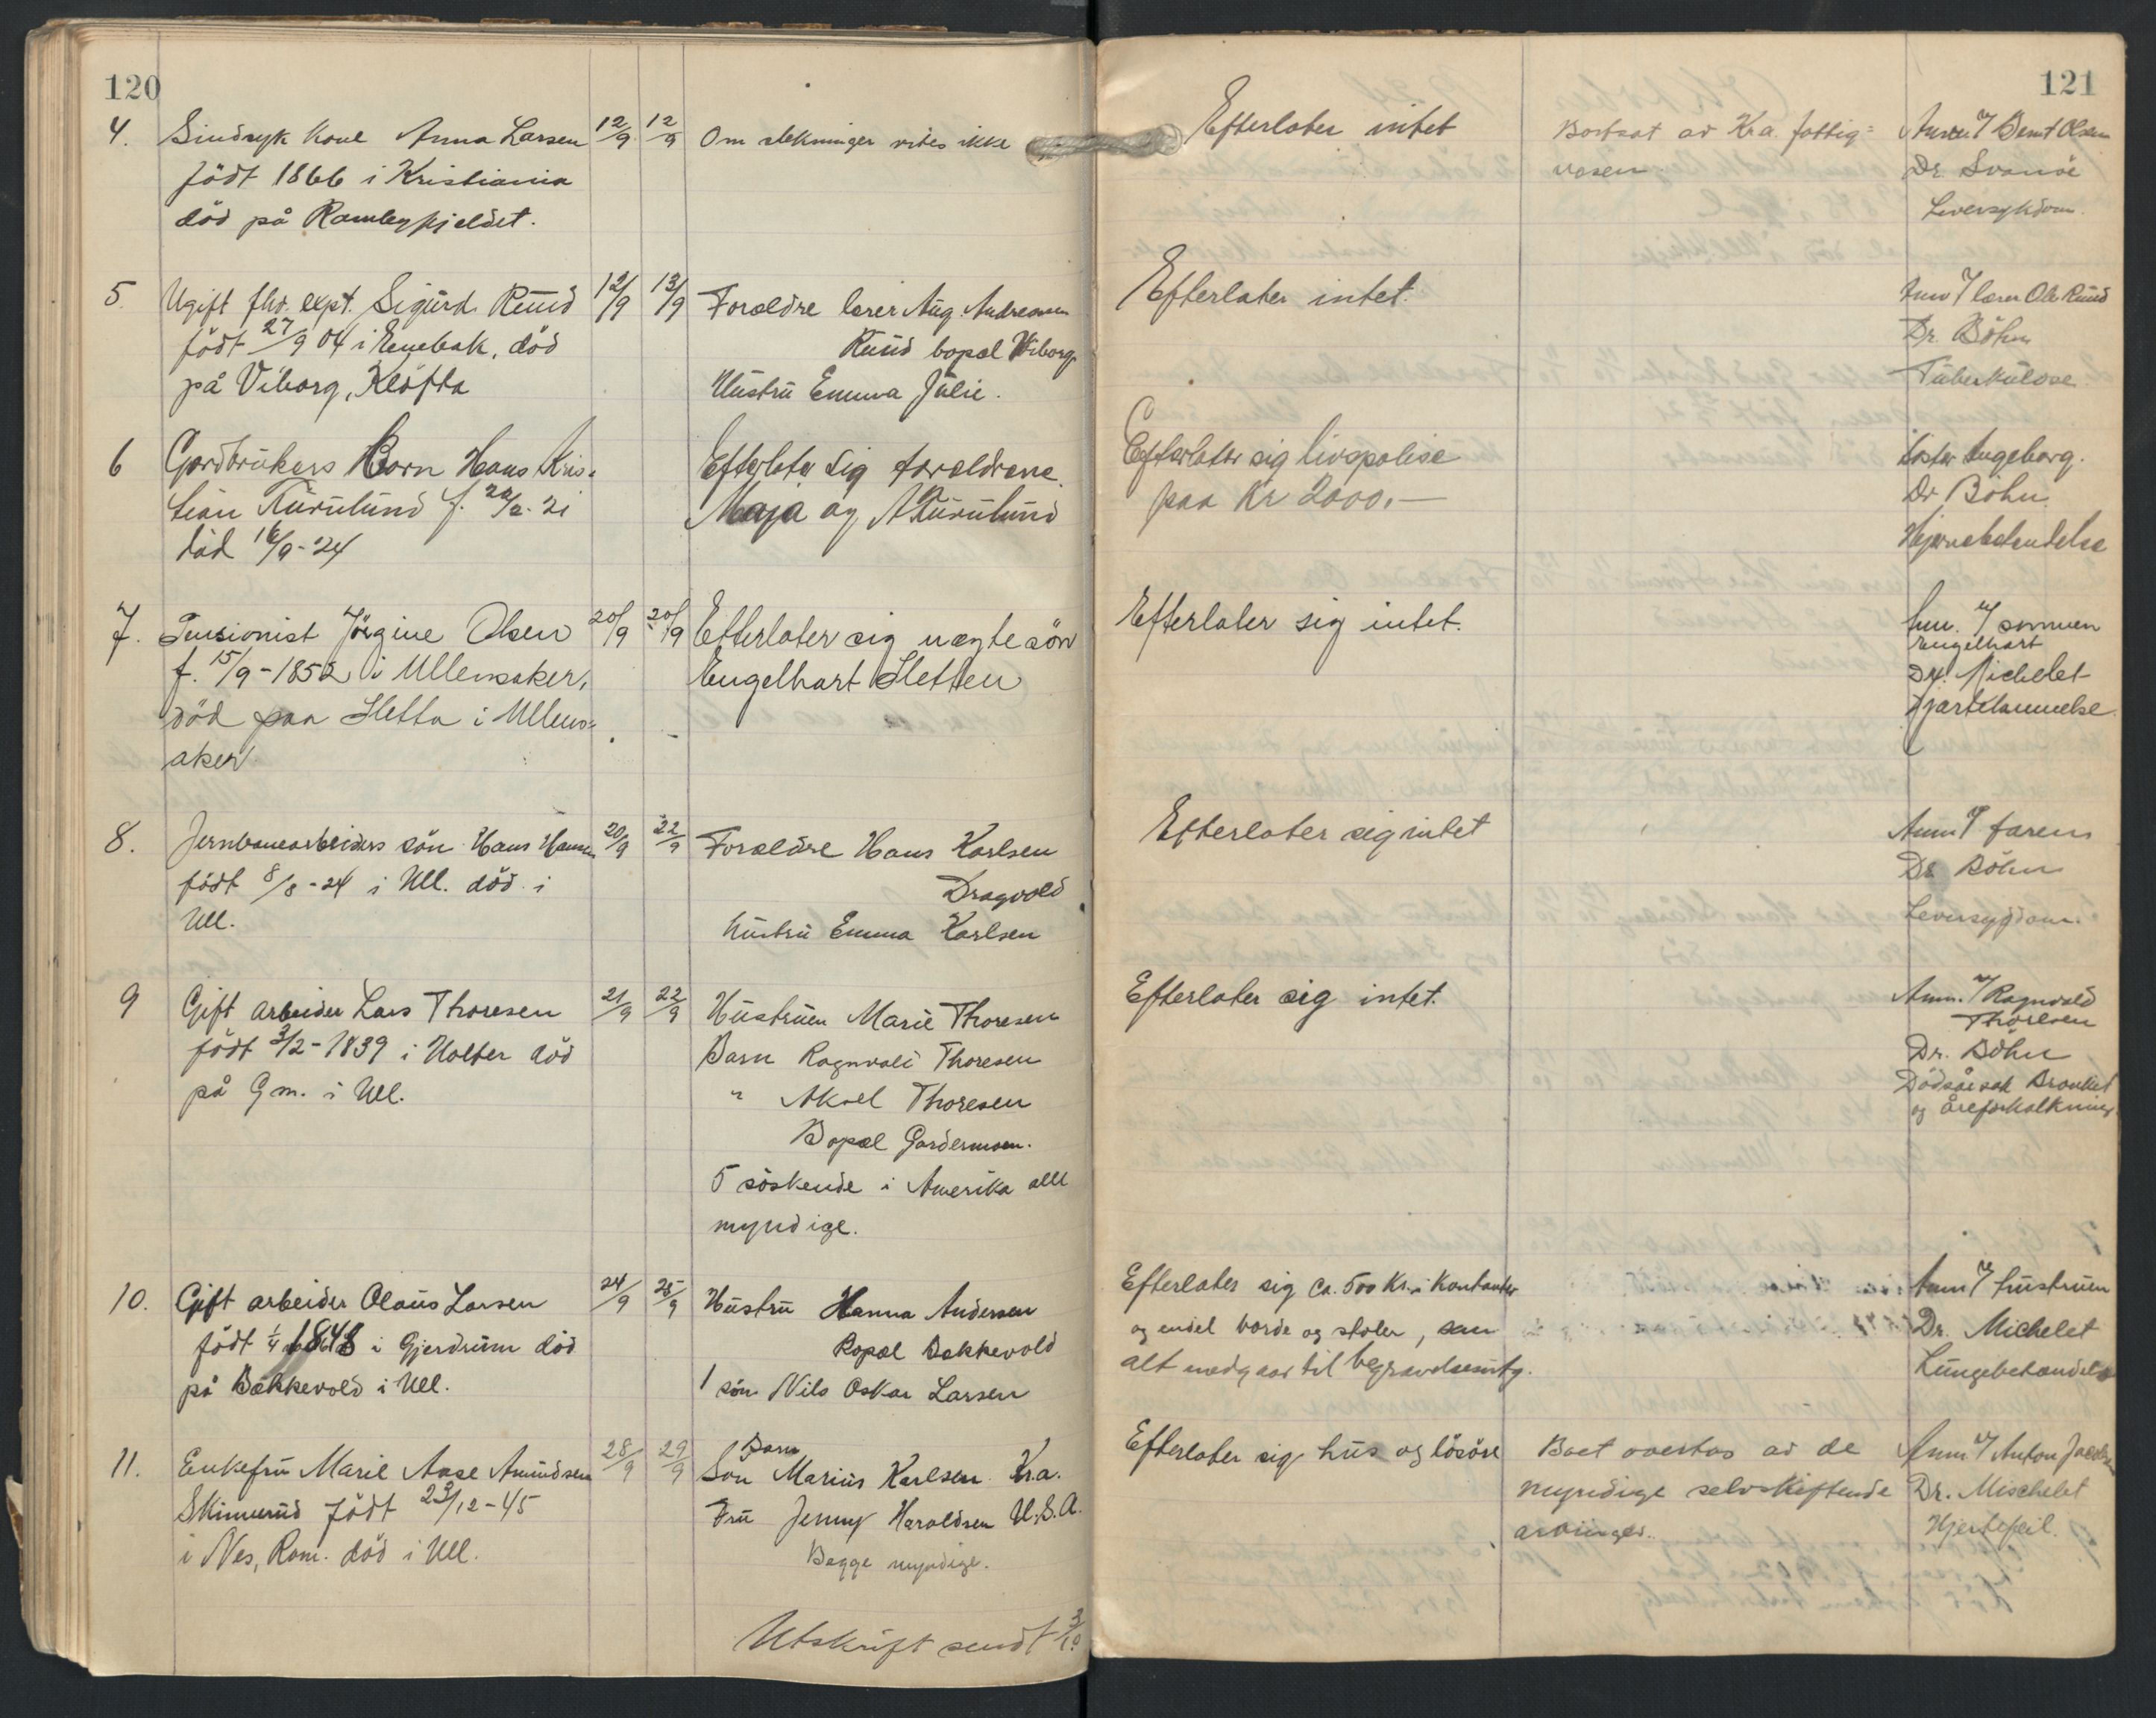 120
4. Sindsyk kone Anna Larsen 12/9 12/9 Om slektninger vites ikke
født 1866 i Kristiania
död på
5. Ugift fhv. expt. Sigurd Ruud 12/9 13/9 Forældre lærer Aug. Andreassen
født 27/9 04 i Enebak, död Ruud bopæl Wiborg
på Viborg, Klöfta Hustru Emma Julie.
6 Gardbrukers Barn Hans Kris- Efterlater sig forældrene
tian Furulund f. 22/2-21 Maja og A Furulund
död 16/9-24
7. Pensionist Jörgine Olsen 20/9 20/9 Efterlater sig uægte sön
f. 15/9-1852 i Ullensaker, Engelhart Sletten
död paa Sletta i Ullens-
aker
8. Jernbanearbeiders sön Hans Hansen 20/9 22/9 Forældre Hans Karlsen
født 8/8-24 i Ull. död i Dragvold
Ull. Hustru Emma Karlsen
9 Gift arbeider Lars Thoresen 21/9 22/9 Hustruen Marie Thoresen
født 3/2-1839 i Holter död Barn Ragnvald Thoresen
på Gm. i Ull. " Aksel Thoresen
Bopæl Gardermoen.
5 söskende i Amerika alle
myndige.
10. Gift arbeider Olaus Larsen 24/9 25/9 Hustru Hanna Andersen
født 1/4 1848 i Gjerdrum död Bopæl Bakkevold
på Bakkevold i Ull. 1 sön Nils Oskar Larsen
11. Enkefru Marie Aase Amundsen 28/9 29/9 Barn
Sön Marius Karlsen Kr.a.
Skinnerud født 23/12-45 Fru Jenny Haraldsen U.S.A.
i Nes, Rom. död i Ull. Begge myndige.
Utskrift sendt 3/10
121
Efterlater intet Bortsat av Kr.a. fattig= Anm. v/ Bernt Olsen
vesen. Dr. Svanöe
Leversykdom.
Efterlater intet. Anm v/ lærer Ole Ruud
Dr. Böhn
Tuberkulose.
Efterlater sig livspolise Søster Ingeborg.
paa Kr 2000.- Dr Böhn
Hjernebetendelse
Efterlater sig intet. Anm. v/ sønnen
Engelhart
Dr. Michelet
Hjertelammelse
Efterlater sig intet Anm v/ faren
Dr Böhn
Leversygdom.
Efterlater sig intet. Anm. v/ Ragnvald
Thoresen
Dr. Böhn
Dödsårsak Bronkit
og åreforkalkning.
Efterlater sig ca. 500 Kr. i Kontanter Anm v/ hustruen
og endel borde og stoler, som Dr. Michelet
alt medgaar til begravelsesutg. Lungebetændelse
Efterlater sig hus og lösöre Boet overtas av de Anm v/ Anton
myndige selvskiftende Dr. Mischelet
arvinger. Hjertefeil.